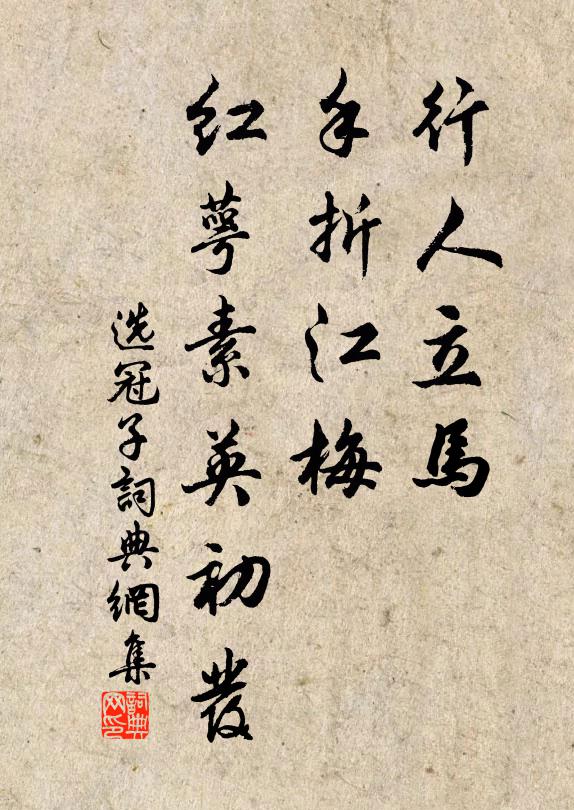 行人立馬
手折江梅
紅萼素英初發
选冠子詞典網集
詞典网印